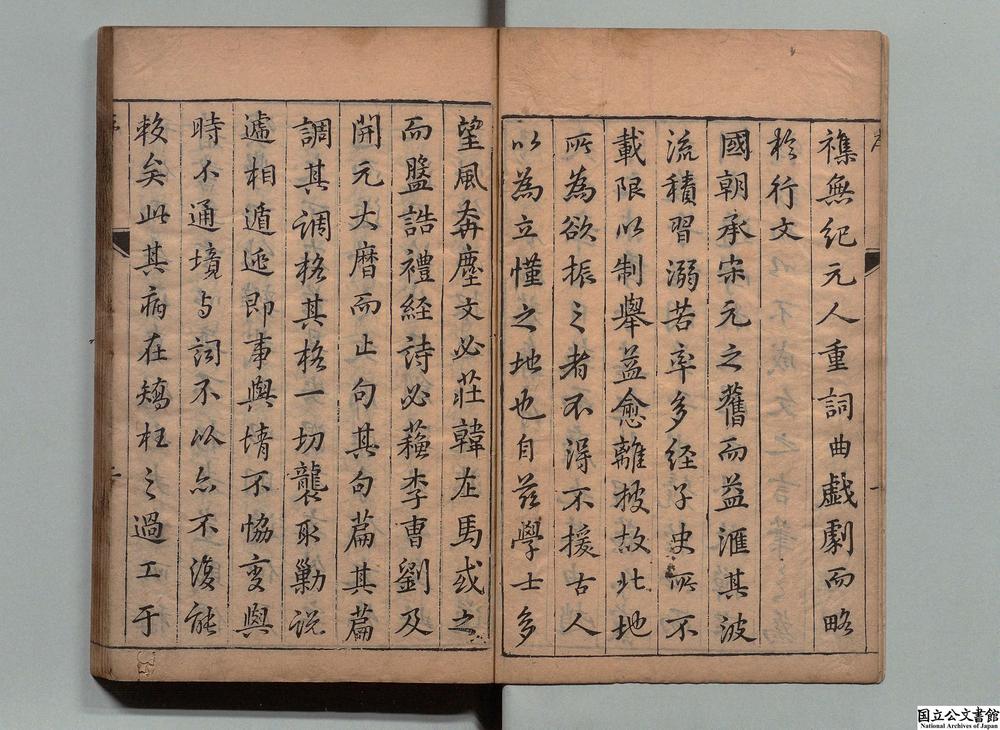 襍無紀元人重詞曲戲劇而略
於行文
國朝承宋元之舊而益滙其波
流積習溺若率多經子史所不
載限以制舉益愈離披故北地
所為欲振之者不得不援古人
以為立懂之地也自茲學士多
望風奔塵文必莊韓左馬或之
而盤誥禮經詩必蘓李曹劉及
開元大曆而止句其句篇其篇
調其調格其格一切襲取勦說
遞相遁逃即事與情不恊变與
時不通境与詞不以亦不復能
敕矣此其病在矯枉之過工于
国立公文書館
National Archives of Japan